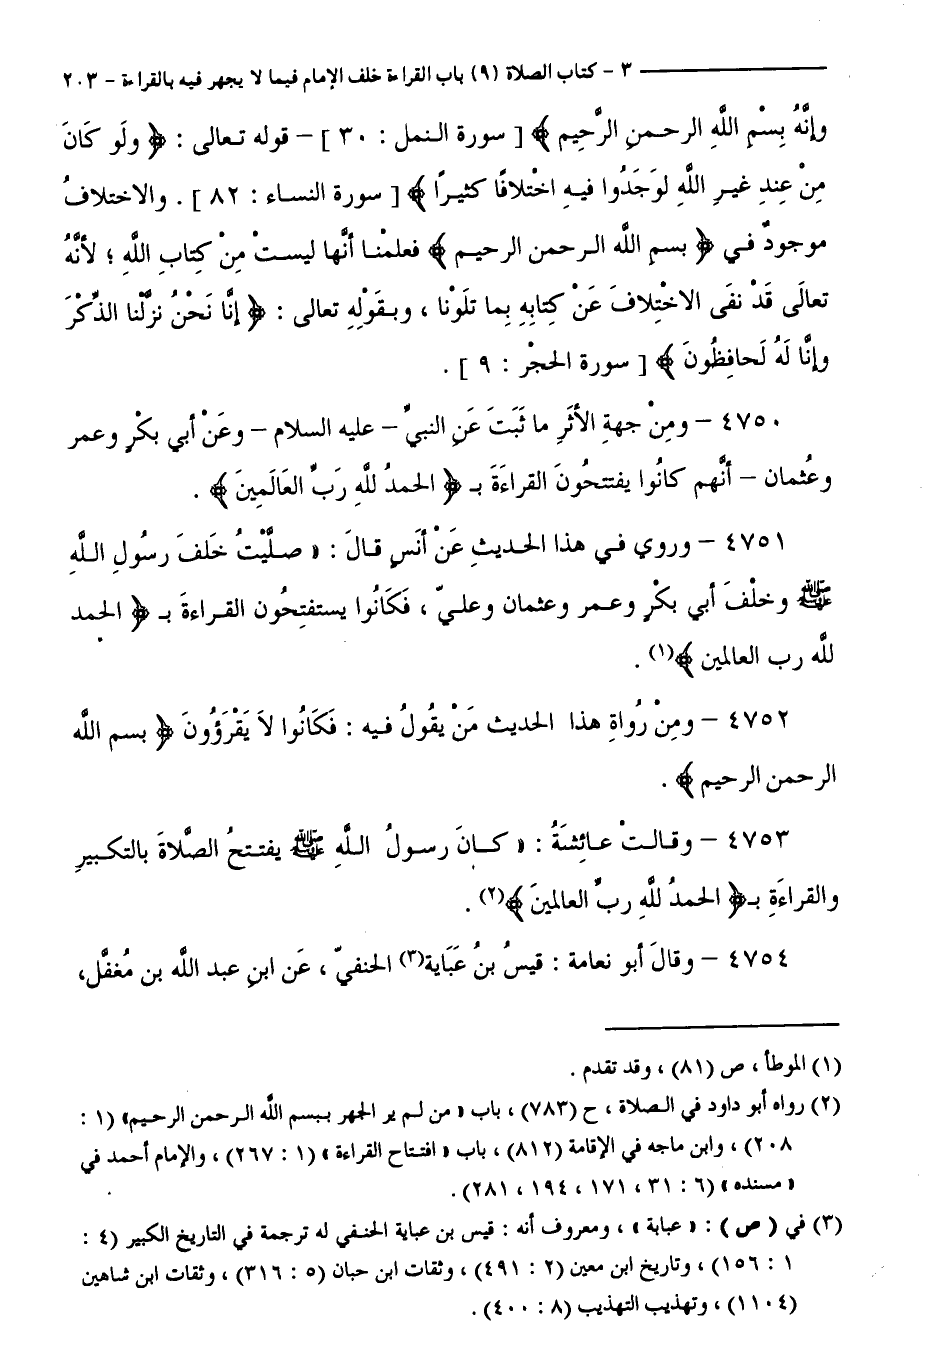 ٣ - كتاب الصلاة (٩) باب القراءة خلف الإمام فيما لا يجهر فيه بالقراءة - ٢٠٣
وإنَّهُ بِسْمِ اللَّهِ الرحمنِ الرَّحِيمِ ﴾ [ سورة النمل : ٣٠ ] – قوله تعالى : ﴿ ولَو كَانَ
مِنْ عِندِ غيرِ اللَّهِ لوَجَدُوا فيهِ اخْتلافًا كثيرًا ﴾ [ سورة النساء : ٨٢ ] . والاختلافُ
موجودٌ في ﴿ بسمِ اللَّه الرحمن الرحيم ﴾ فعلمْنا أنَّها ليستْ مِنْ كتابِ اللَّهِ ؛ لأنَّهُ
تعالَى قَدْ نفَى الاخْتِلافَ عَنْ كتابِهِ بِما تلَوْنا ، وبقَوْلِهِ تعالى : ﴿ إنَّا نَحْنُ نزَّلْنا الذِّكْرَ
وإنَّا لَهُ لَحافِظُونَ ﴾ [ سورة الحجْر : ٩ ] .
٤٧٥٠ – ومِنْ جهةِ الأثَرِ ما ثَبَتَ عَنِ النبيِّ – عليه السلام – وعَنْ أبي بكْرٍ وعمر
وعُثمان – أنَّهم كانُوا يفتتحُونَ القراءَةَ بـ ﴿ الحمدُ للَّهِ رَبِّ العَالَمِينَ ﴾ .
٤٧٥١ – وروي في هذا الحديثِ عَنْ أنَسٍ قالَ : « صلَّيْتُ خَلفَ رسُولِ اللَّهِ
ﷺ وخلْفَ أبي بكْرٍ وعمر وعثمان وعليّ ، فَكَانُوا يستفتِحُون القراءةَ بـ ﴿ الحمد
للَّه رب العالمين ﴾(١) .
٤٧٥٢ – ومِنْ رُواةِ هذا الحديث مَنْ يقُولُ فيه : فَكَانُوا لاَ يَقْرَؤُونَ ﴿ بسم اللَّه
الرحمن الرحيم ﴾ .
٤٧٥٣ – وقالتْ عائِشَةُ : « كانَ رسولُ اللَّهِ ﷺ يفتتحُ الصَّلاةَ بالتكبيرِ
والقراءَةِ بـ﴿ الحمدُ للَّهِ ربِّ العالمينَ ﴾(٢) .
٤٧٥٤ – وقالَ أبو نعامة : قيسُ بنُ عَبَاية(٣) الحنفيّ ، عَن ابنِ عبد اللَّه بن مُغفَّل،
(١) الموطأ ، ص (٨١) ، وقد تقدم .
(٢) رواه أبو داود في الصلاة ، ح (٧٨٣) ، باب « من لم ير الجهر ببسم اللَّه الرحمن الرحيم» (١ :
٢٠٨) ، وابن ماجه في الإقامة (٨١٢) ، باب « افتتاح القراءة » (١ : ٢٦٧) ، والإمام أحمد في
« مسنده » (٦ : ٣١ ، ١٧١ ، ١٩٤ ، ٢٨١).
(٣) في ( ص ) : « عبابة » ، ومعروف أنه : قيس بن عباية الحنفي له ترجمة في التاريخ الكبير (٤ :
١ : ١٥٦) ، وتاريخ ابن معين (٢ : ٤٩١) ، وثقات ابن حبان (٥ : ٣١٦) ، وثقات ابن شاهين
(١١٠٤) ، وتهذيب التهذيب (٨ : ٤٠٠) .